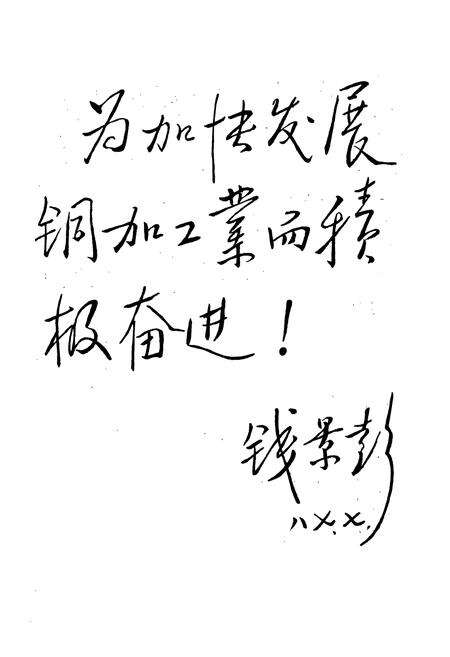 为加快发展
铜加工業而積
极奋进！
钱景彭